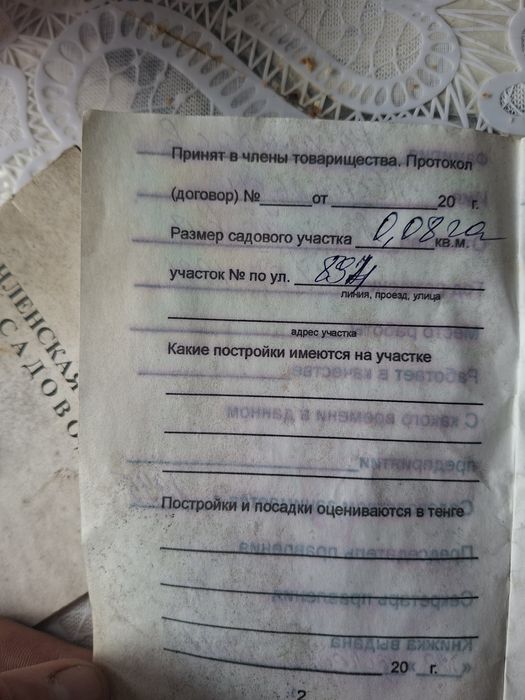 Принят в члены товарищества. Протокол
(договор) №______от ____________20 г.
Размер садового участка 0,08га кв.м.
участок № по ул.
линия, проезд, улица
адрес участка
Какие постройки имеются на участке
Постройки и посадки оцениваются в тенге
20 г.
2
ЧЛЕНСКАЯ
САДОВО